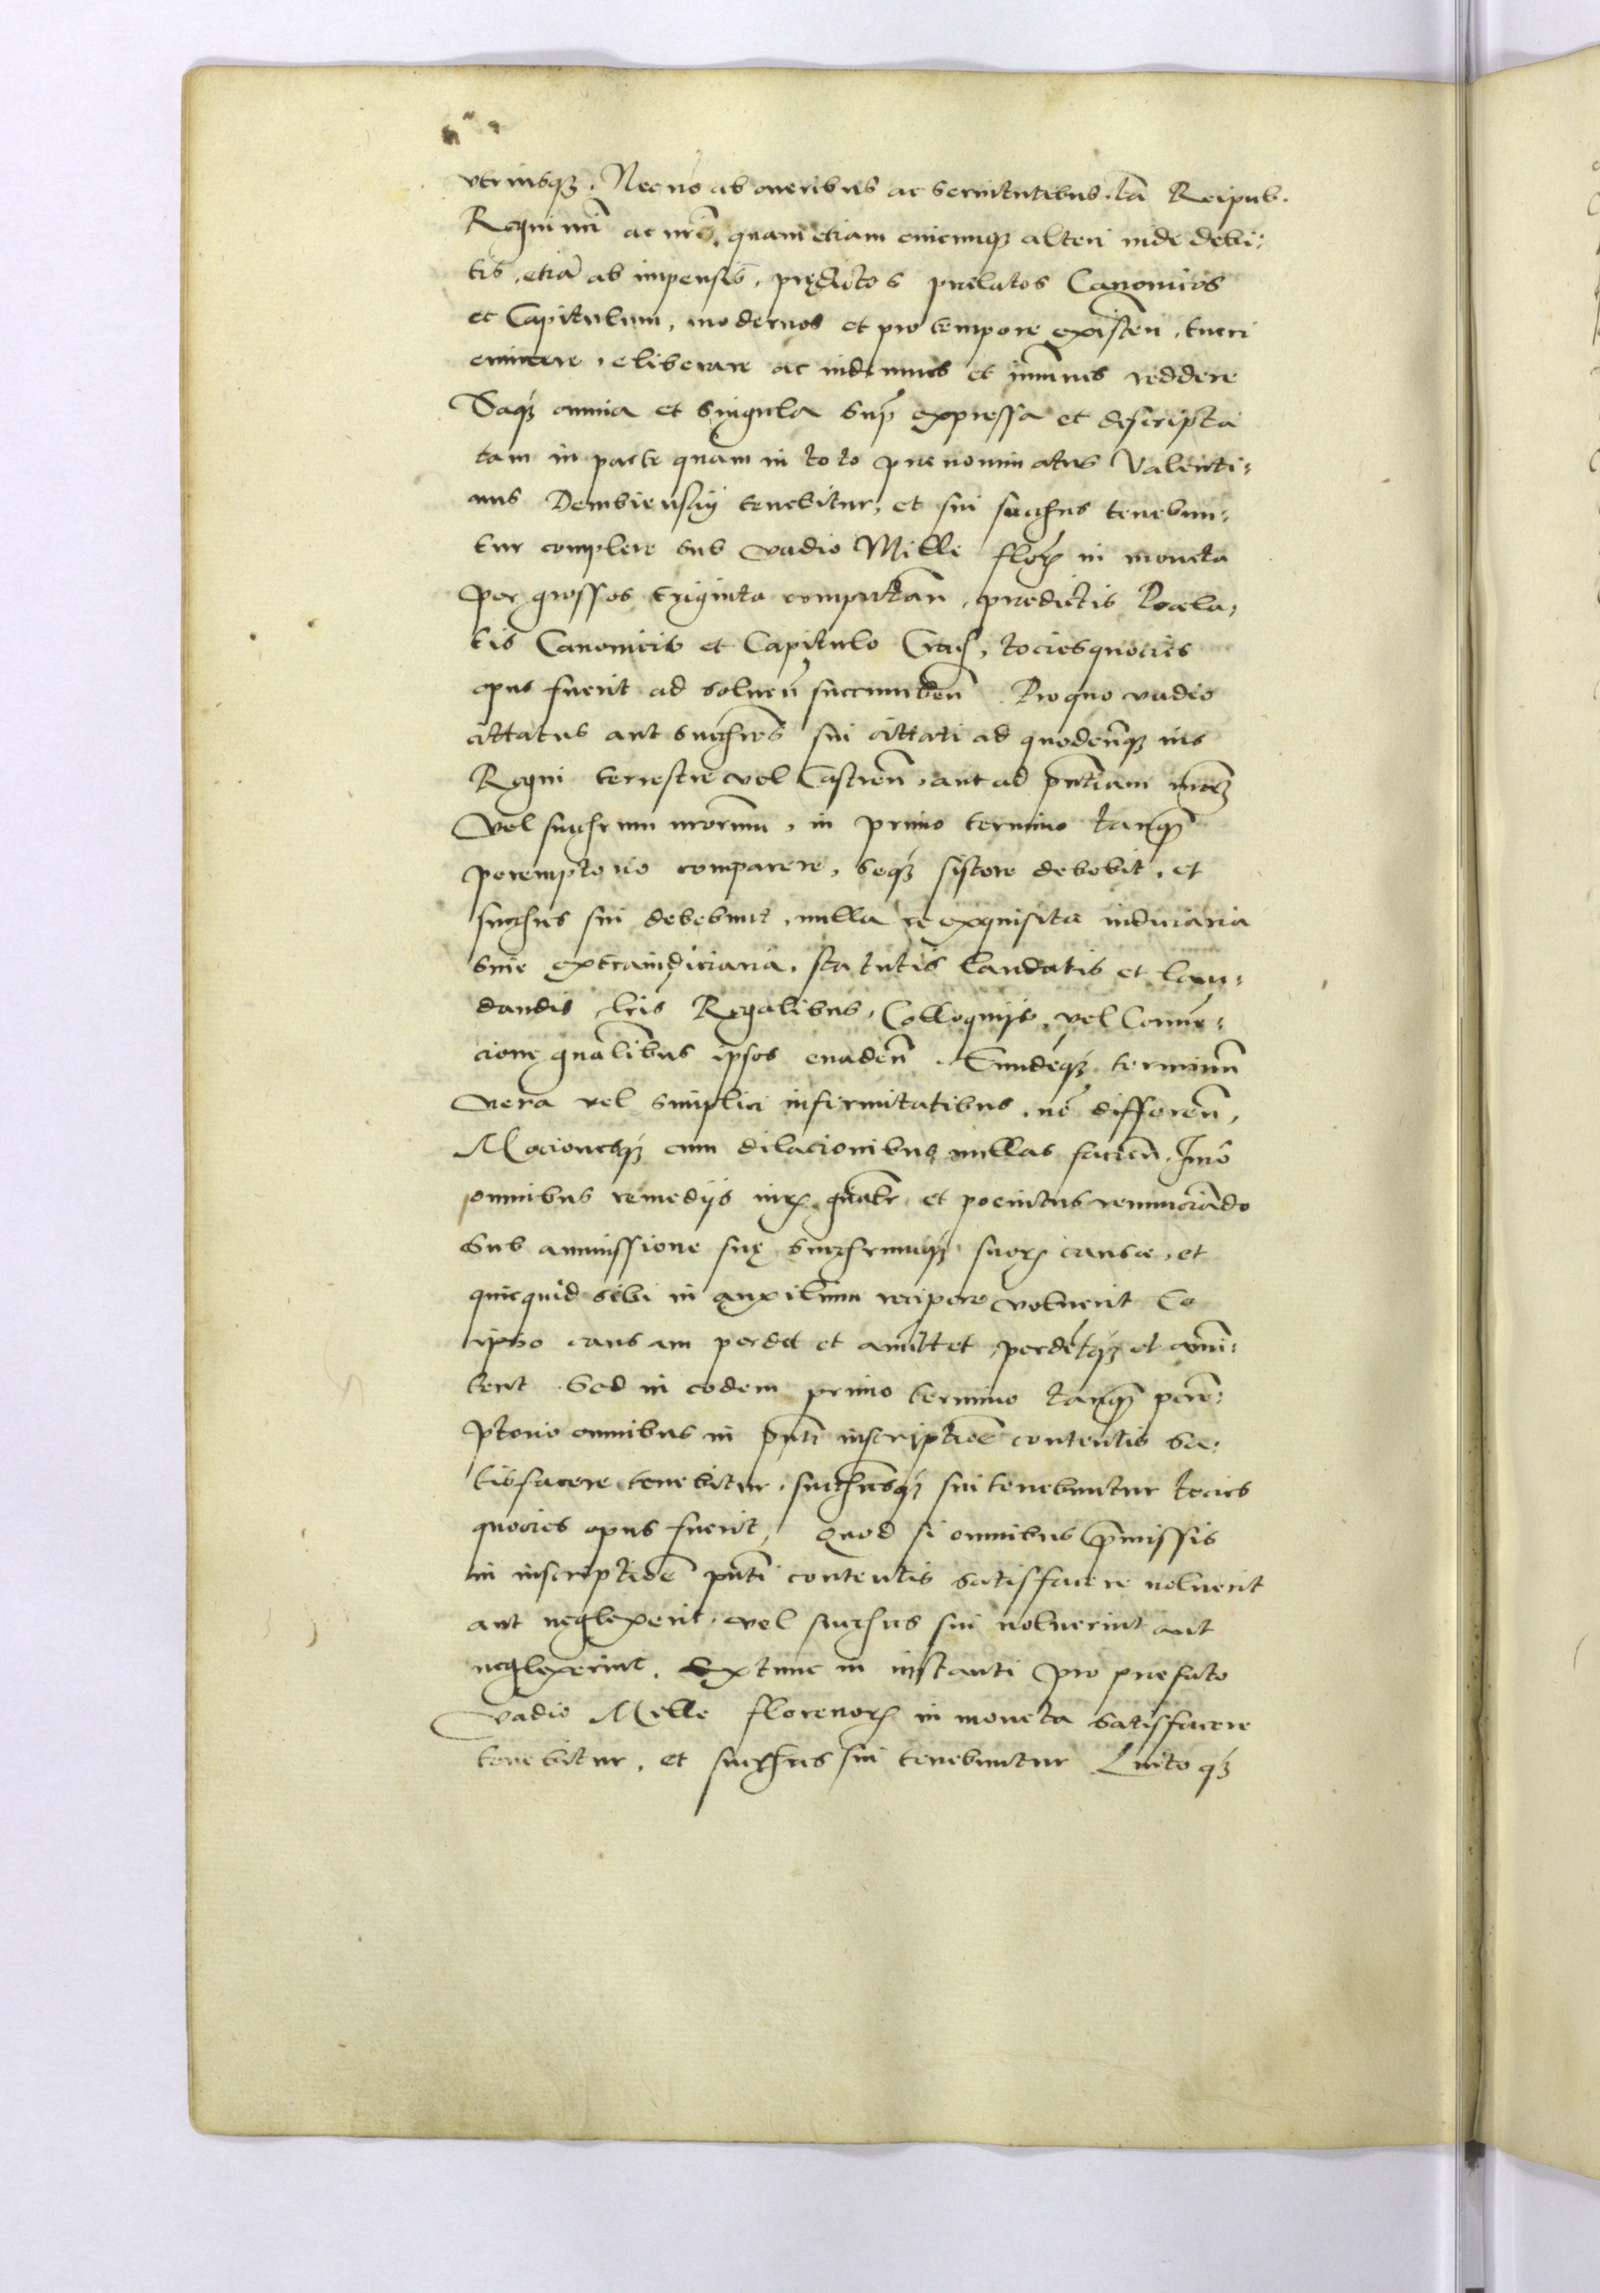 vtriusq3. Necnō ab oneribus ac seruitutibus tā Reipub.
Regni nri ac nris, quam etiam cuicumq3 alteri inde debi:
tis, etiā ab impensis, prędictos prelatos Canonicos
et Capitulum, modernos et pro tempore existen̄, tueri
euincere, eliberare ac indemnes et imūnes reddere
Eaq3 omnia et singula sup̄ expressa et descripta
tam in parte quam in toto prenominatus Valenti:
nus Dembiensky tenebitur, et sui succrēs tenebun:
tur complere sub vadio Mille flor̄ in moneta
per grossos triginta computan̄, predictis Prela:
tis Canonicis et Capitulo Crac̄, tociesquocies
opus fuerit ad soluen̄ succumben̄ Pro quo vadio
cittatus aut succres sui cittati ad quodcunq3 ius
Regni terrestre vel Castren̄, aut ad pn̄tiam nrām
Vel succrum nrorum, in primo termino tanq̄
peremptorio comparere, seq3 sistere debebit, et
succres sui debebunt, nulla re exquisita iudiciaria
siue extraiudiciaria, statutis laudatis et lau:
dandis lris Regalibus, Colloquijs, vel Conuen:
cione qualibus ipsos euaden̄. Eundeq3 terminum
Vera vel simplici infirmitatibus, nō differen̄,
Mocionesq3 cum dilacionibus nullas facien̄. Imo
omnibus remedijs iur̄ gn̄alr̄ et poenitus renunciādo
Sub ammissione suę succrumq3 suor̄ causæ, et
quicquid sibi in auxilium recipere voluerit Eo
ipso causam perdet et amittet, perdetq3 et amit:
tent Sed in eodem primo termino tanq̄ perē:
ptorio omnibus in pn̄ti inscriptiōe contentis Sa:
tisfacere tenebitur, succresq3 sui tenebuntur tocies
quocies opus fuerit, Quod si omnibus p̄missis
in inscriptiōe pn̄ti contentis satisfacere noluerit
aut neglexerit, vel succres sui noluerint aut
neglexerint, Extunc in instanti pro prefato
vadio Mille florenor̄ in moneta satisfacere
tenebitur, et succres sui tenebuntur Luitoq3